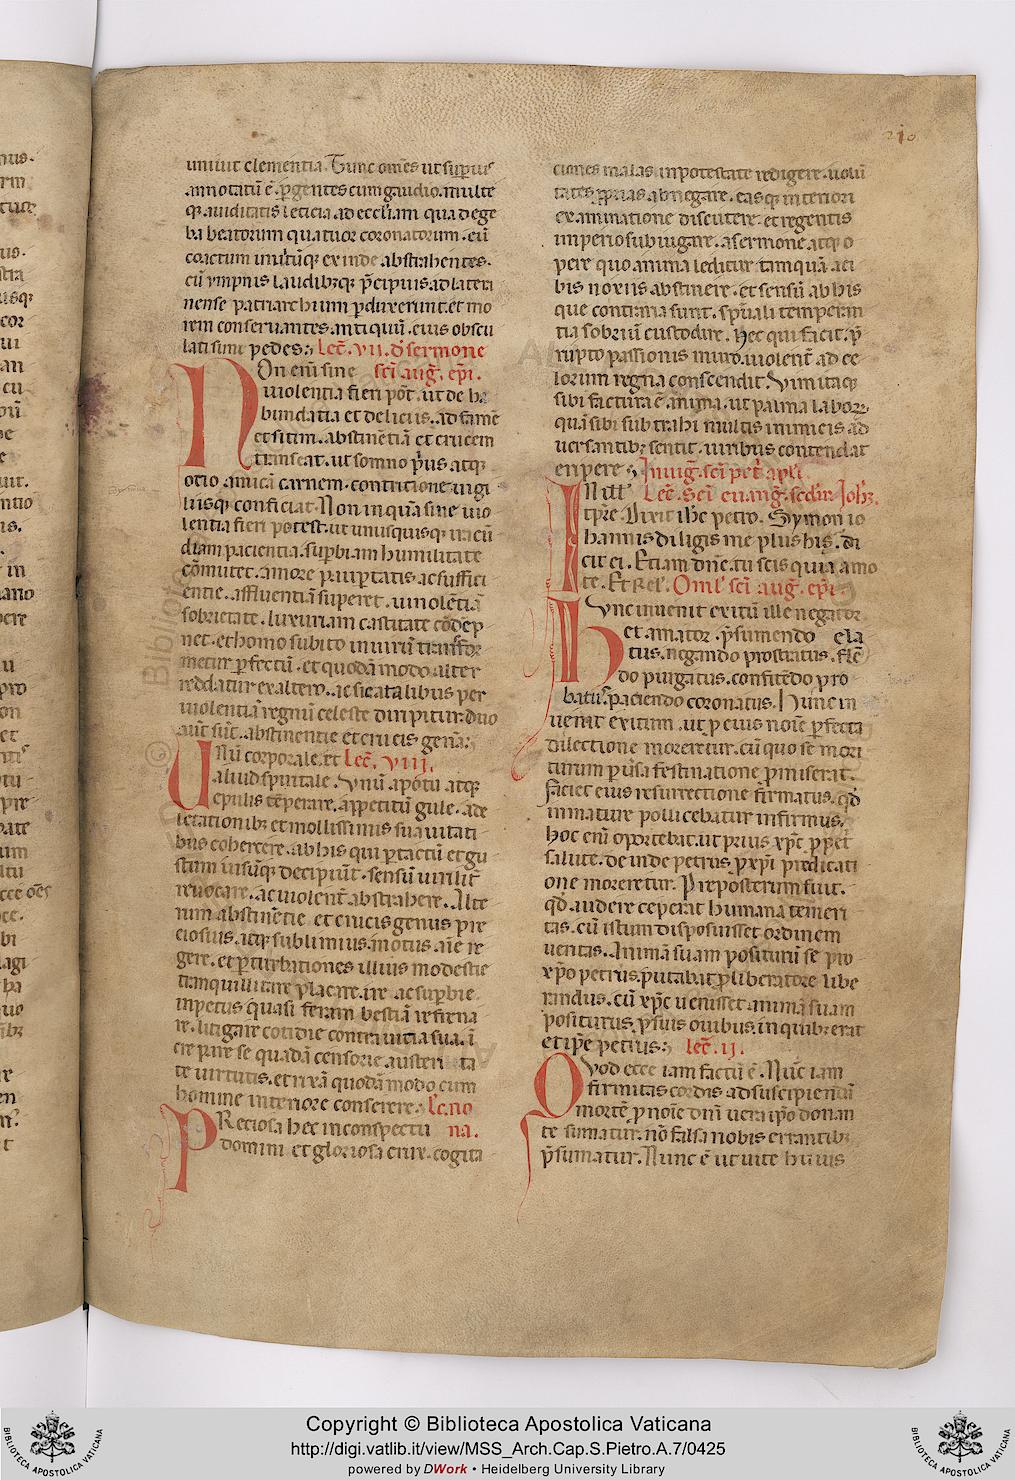 210
uiuit clementia. Tunc om̅es ut sup̅ius
annotatu̅ e̅. p̅gentes cum gaudio. multe
q; auiditatis leticia. ad eccl̅iam qua degeba
ba beatorum quatuor coronatorum. eu̅
coactum inuitu̅q; exinde abstrahentes.
cu̅ ympnis laudibusq; p̅cipuis. ad lateranense
nense patriarchium p̅duxerunt. et mo
rem conseruantes antiquu̅. eius oscu
lati sunt pedes. lec̅. vii. d̅ sermone
Non eni̅ sine sc̅i aug̅. ep̅i.
uiolentia fieri pot̅. ut de ha
bundatia et deliciis. ad fame̅
et sitim. abstine̅tia̅ et crucem
transeat. ut somno p̅us atq;
otio amica̅ carnem. contritione uigi
liisq; conficiat. Non inqua̅ sine uio
lentia fieri potest. ut unusquisq; iracu̅
diam pacientia. sup̅biam humilitate
co̅mutet. amore paup̅tatis ac suffici
entie. affluentia̅ superet. uinole̅tia̅
sobrietate. luxuriam castitate co̅dep̅
net. et homo subito in uiru̅ transfor
metur p̅fectu̅. et quoda̅modo alter
reddatur ex altero. ac sic a talibus per
uiolentia̅ regnu̅ celeste diripitur. Duo
aute̅ su̅t. abstinentie et crucis gen̅a.
Unu̅ corporale. et lec̅. viii.
aliud spiritale. Unu̅ a potu atq;
epulis te̅perare. appetitu̅ gule. a de
lectationibus et mollissimis suauitati
bus cohercere. ab his qui p̅ tactu̅ et gu
stum uisu̅q; decipiu̅t. sensu̅ uirilit̅
reuocare. ac uiolent̅ abstrahere. Alte
rum abstine̅tie et crucis genus pre
ciosius. atq; sublimius. motus ai̅e re
gere. et p̅turbationes illius modestie
tranquillitate placare. ire ac sup̅bie
inpetus quasi feram bestia̅ refrena
re. litigare cotidie contra uitia sua. i̅
crepare se quada̅ censorie austeri ta
te uirtutis. et rixa̅ quoda̅modo cum
homine interiore conserere. lec̅. no
PReciosa hec in conspectu na.
domini et gloriosa crux. cogita
ciones malas in potestate redigere. uolu̅
tates p̅prias abnegare. easq; interiori
examinatione discutere. et regentis
imperio subiugare. a sermone atq; o
pere quo anima leditur tamqua̅ a ci
bis noxiis abstinere. et sensu̅ ab his
que contraria sunt. sp̅uali temperan
tia sobriu̅ custodire. Hec qui facit. p̅
rupto passionis muro. uiolent̅ ad ce
lorum regna conscendit. Vim itaq;
sibi factura e̅ anima. ut palma labor;
qua̅ sibi subtrahi multis inimicis ad
uersantib; sentit. uiribus contendat
eripere. In uig̅. sc̅i pet̅ ap̅li.
IN ill̅ Lec̅. sc̅i euang̅. sed̅m Ioh̅.
tp̅re. Dixit ih̅c petro. Symon io
hannis diligis me plus his. di
cit ei. Etiam dn̅e. tu scis quia amo
te. Et rel̅. Oml̅ sc̅i aug̅. ep̅i.
Hunc inuenit exitu̅ ille negator
et amator. p̅sumendo ela
tus. negando prostratus. fle̅
do purgatus. confite̅do pro
batus. paciendo coronatus. Hunc in
uenit exitum. ut p̅ eius noi̅e p̅fecta
dilectione moreretur. cu̅ quo se mori
turum p̅u̅sa festinatione p̅miserat.
Faciet eius resurrectione firmatus. qd̅
inmature pollicebatur infirmus.
Hoc eni̅ oportebat. ut prius xp̅c p̅ pet̅
salute. deinde petrus p̅ xp̅i predicati
one moreretur. Preposterum fuit.
qd̅ audere ceperat humana temeri
tas. cu̅ istum disposuisset ordinem
ueritas. Anima̅ suam positurum se p̅o
xp̅o petrus putabat. p̅ liberatore libe
randus. cu̅ xp̅c uenisset anima̅ suam
positurus p̅ suis ouibus. in quibus erat
et ip̅e petrus. lec̅. ii.
QVod ecce iam factu̅ e̅. Nu̅c iam
firmitas cordis ad suscipienda̅
morte̅ p̅ noi̅e dn̅i uera ip̅o donan
te sumatur. no̅ falsa nobis errantib;
p̅sumatur. Nunc e̅ ut uite huius
BIBLIOTECA APOSTOLICA VATICANA
Copyright © Biblioteca Apostolica Vaticana
http://digi.vatlib.it/view/MSS_Arch.Cap.S.Pietro.A.7/0425
powered by DWork • Heidelberg University Library
BIBLIOTECA APOSTOLICA VATICANA